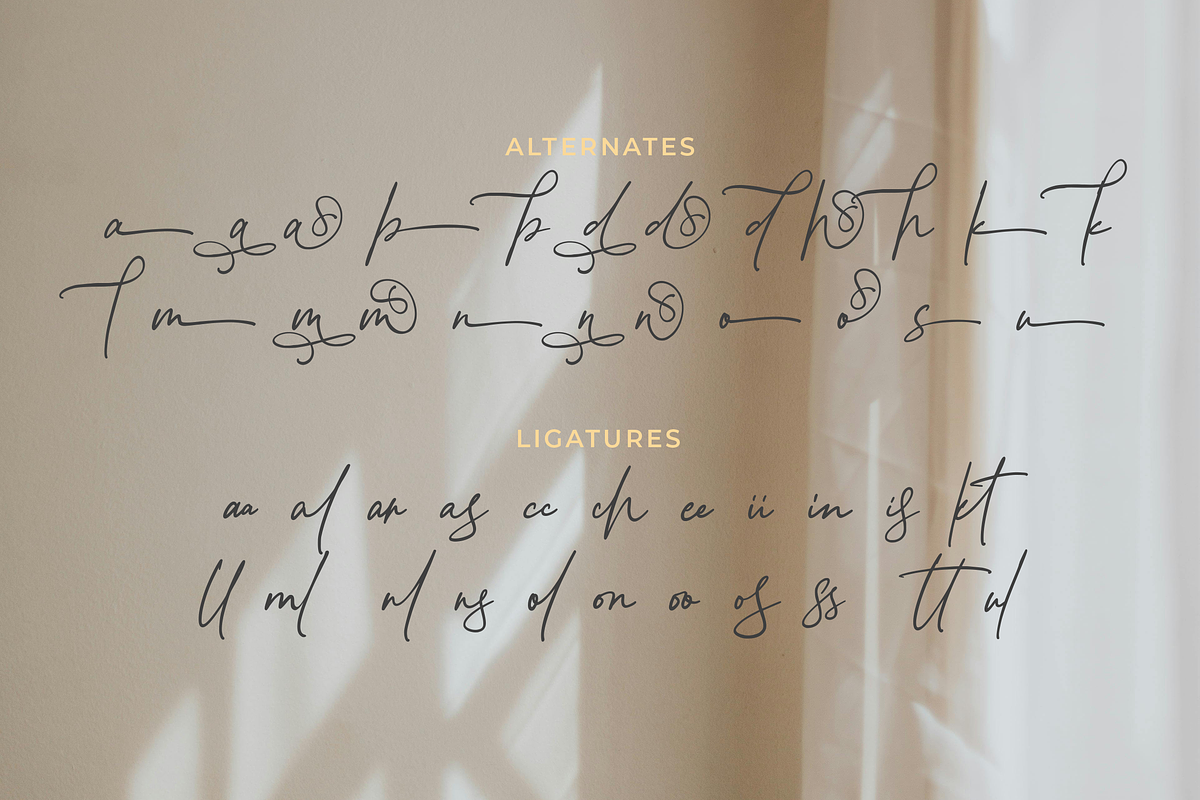 ALTERNATES
a a a b b d d d h h k k
l m m m n n n o o s u
LIGATURES
aa al an as cc ch ee ii in is kt
ll ml nl ns ol on oo os ss tt ul